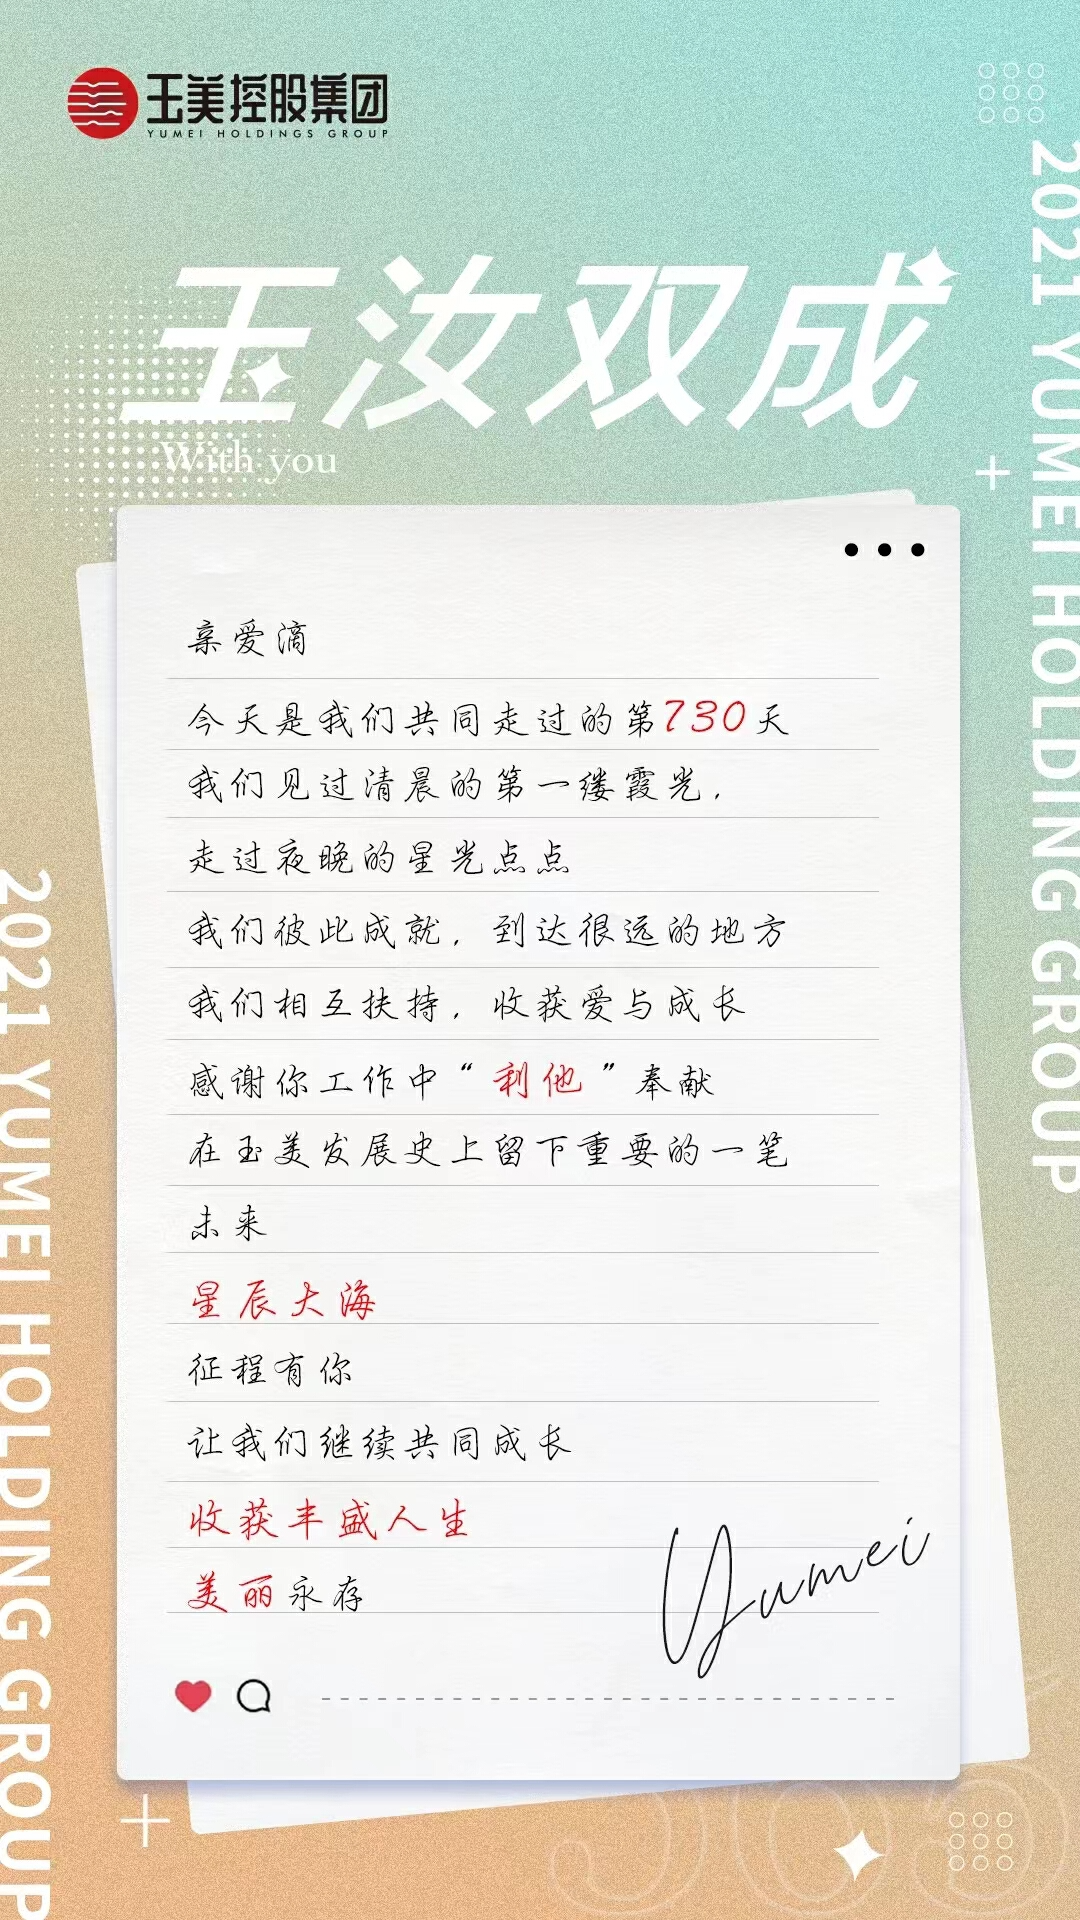 玉美控股集团
YUMEI HOLDINGS GROUP
玉汝双成
With you
2021 YUMEI HOLDING GROUP
亲爱滴
今天是我们共同走过的第730天
我们见过清晨的第一缕霞光，
走过夜晚的星光点点
我们彼此成就，到达很远的地方
我们相互扶持，收获爱与成长
感谢你工作中“利他”奉献
在玉美发展史上留下重要的一笔
未来
星辰大海
征程有你
让我们继续共同成长
收获丰盛人生
美丽永存
Yumei
2021 YUMEI HOLDING GROUP
365